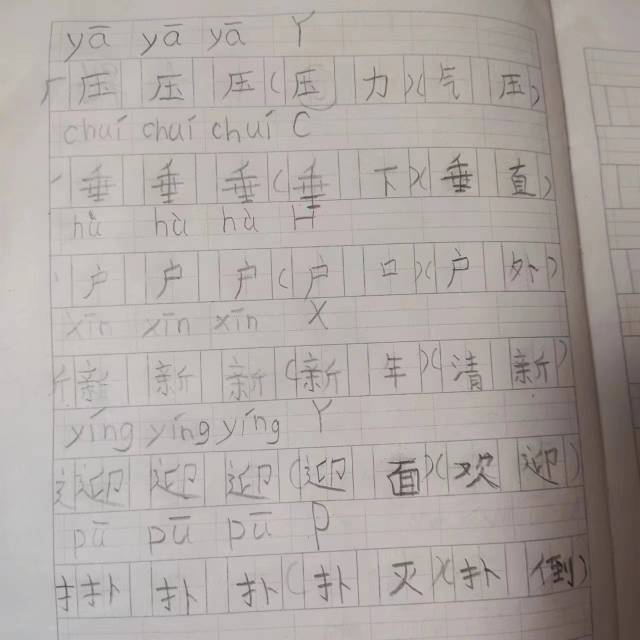 yā yā yā Y
厂压 压 压(压 力)(气 压)
chuí chuí chuí C
丿垂 垂 垂(垂 下)(垂 直)
hù hù hù H
丶户 户 户(户 口)(户 外)
xīn xīn xīn X
斤新 新 新(新 年)(清 新)
yíng yíng yíng Y
辶迎 迎 迎(迎 面)(欢 迎)
pū pū pū P
扌扑 扑 扑(扑 灭)(扑 倒)